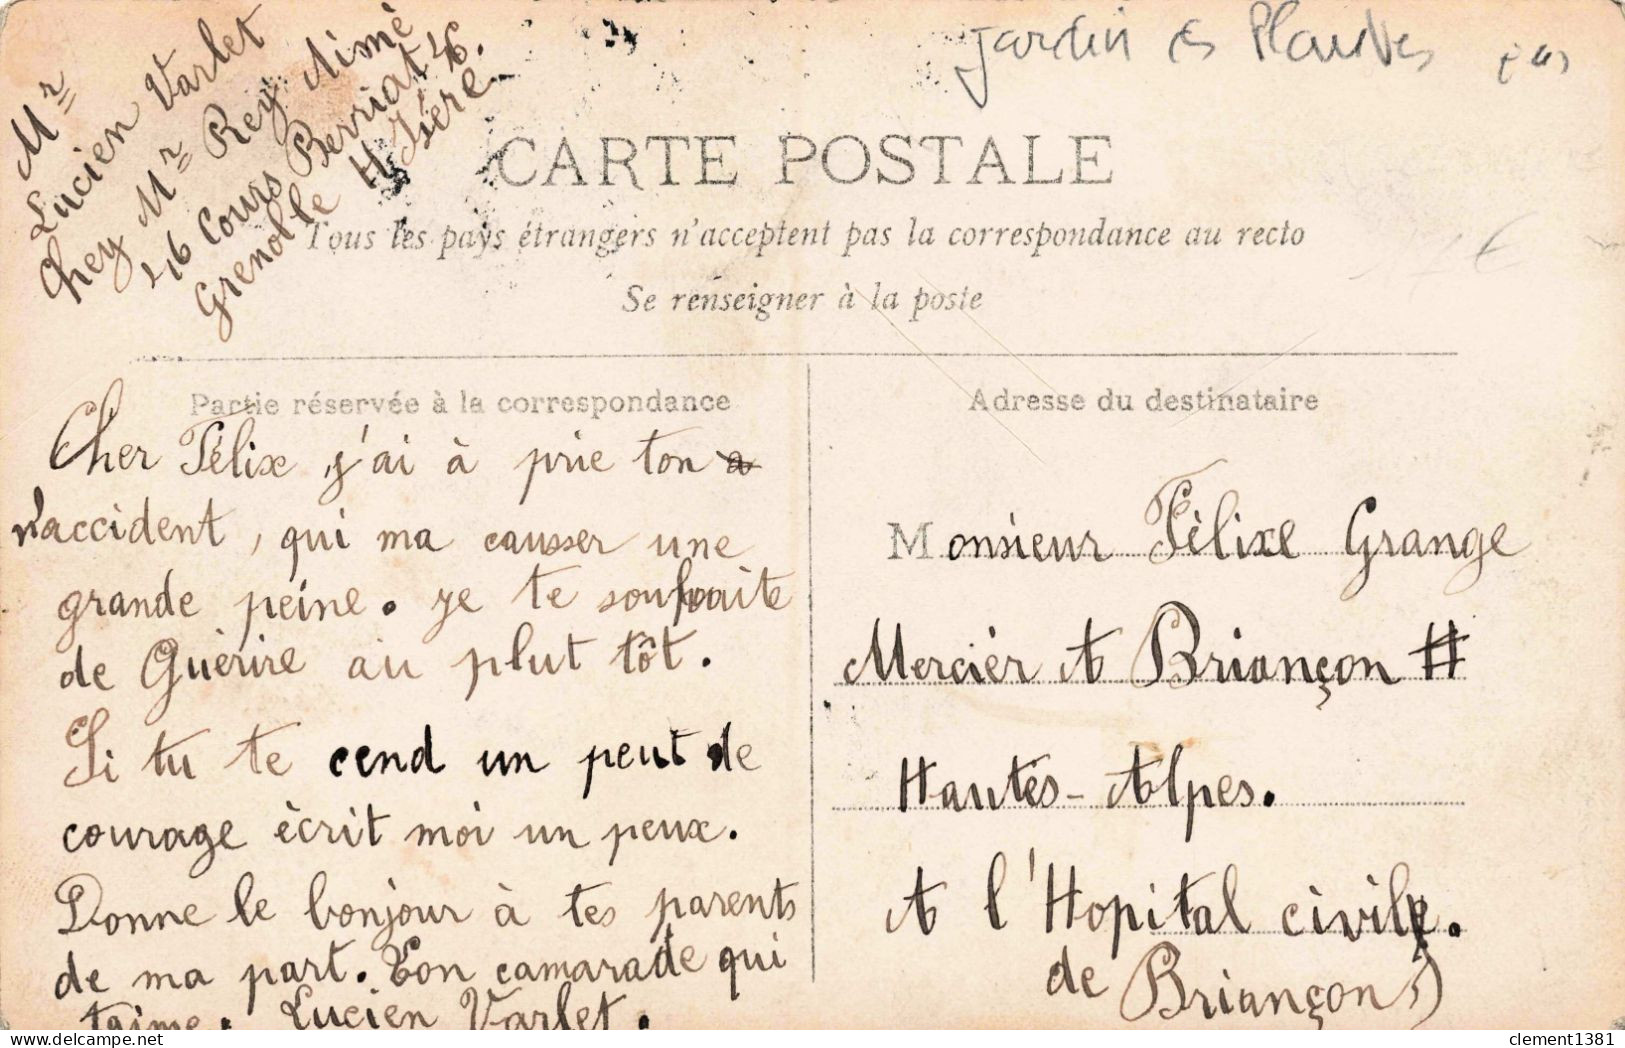 Mr
Lucien Varlet
Chey Mr Rey Aimè
46 Cours Berriat 46.
Grenoble H Isére
Jardin es Plantes
CARTE POSTALE
Tous les pays étrangers n'acceptent pas la correspondance au recto
Se renseigner à la poste
Partie réservée à la correspondance
Cher Félix j'ai à prie ton a
n'accident, qui ma causser une
grande peine. je te souhaite
de Guèrire au plut tôt.
Si tu te cend un peut de
courage ècrit moi un peux.
Donne le bonjour à tes parents
de ma part. Ton camarade qui
taime. Lucien Varlet.
Adresse du destinataire
Monsieur Fèlixe Grange
Merciér A Briançon H
Hautes-Alpes.
A l'Hopital civile.
de Briançon)
clement1381